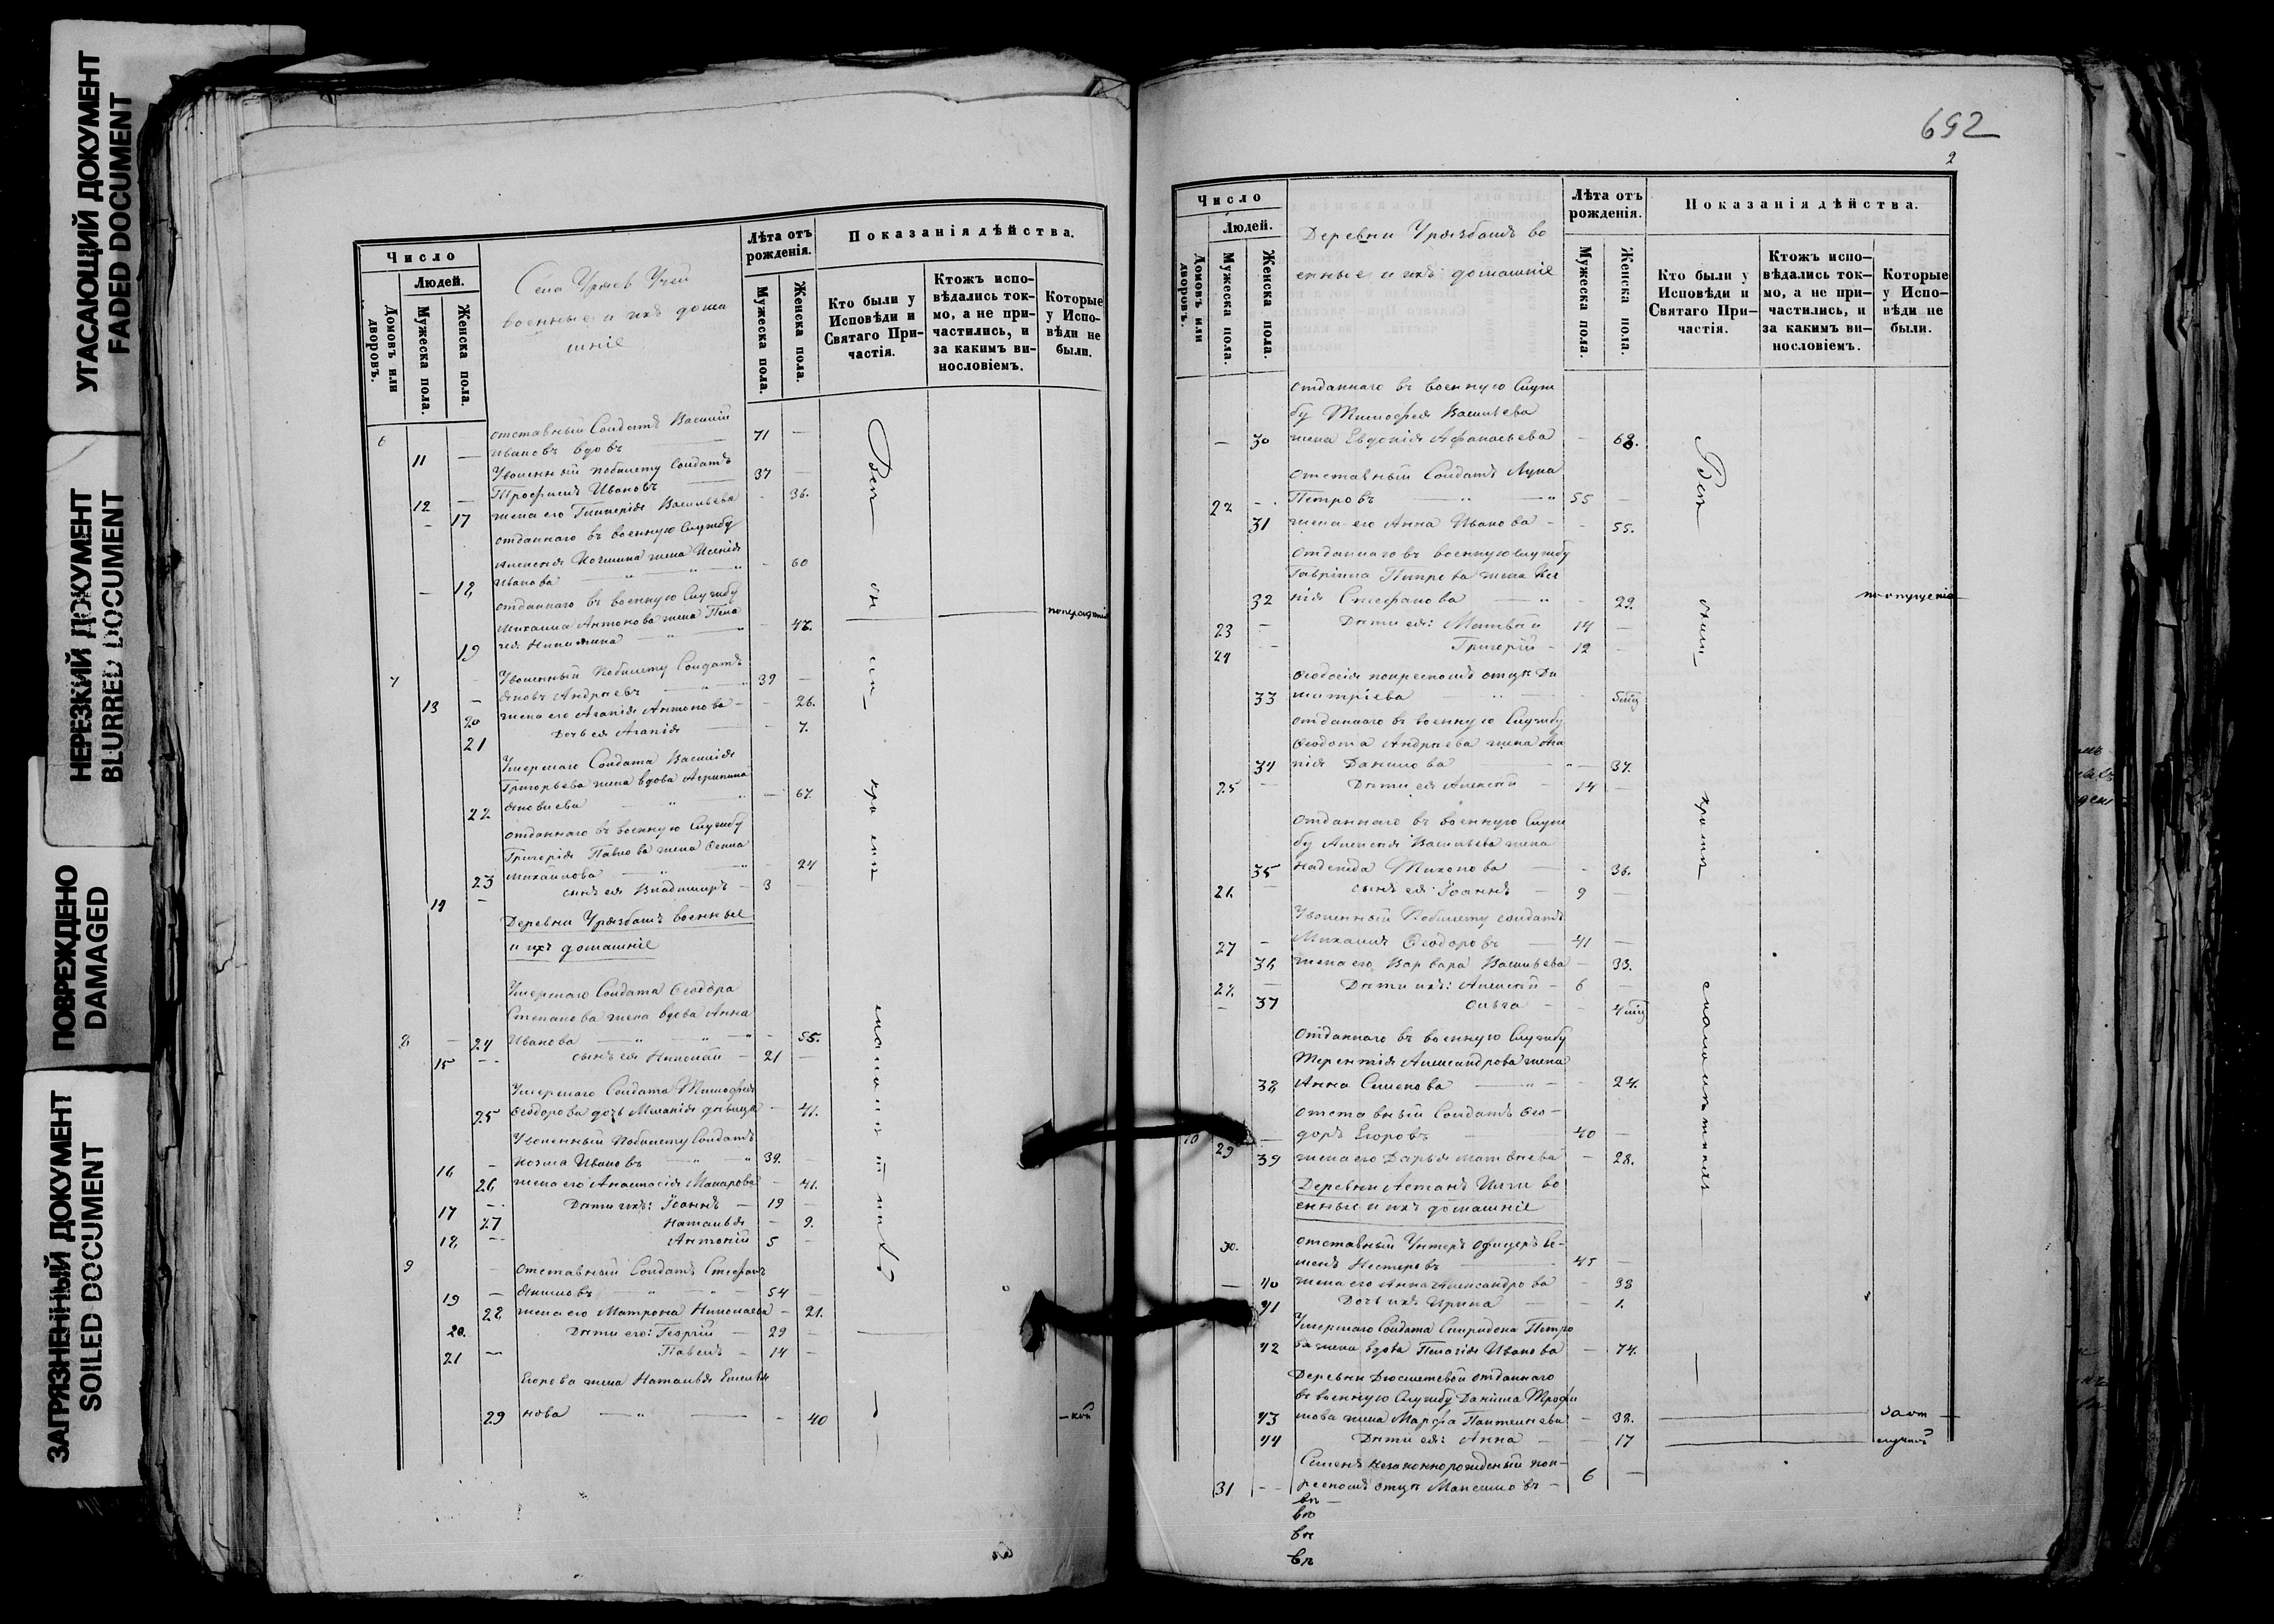 УГАСАЮЩИЙ ДОКУМЕНТ
FADED DOCUMENT
НЕРЕЗКИЙ ДОКУМЕНТ
BLURRED DOCUMENT
ПОВРЕЖДЕНО
DAMAGED
ЗАГРЯЗНЕННЫЙ ДОКУМЕНТ
SOILED DOCUMENT
Число
Людей.
Домовъ или дворовъ.
Мужеска пола.
Женска пола.
Села
военные и ихъ дома
шніе
Лѣта отъ рожденія.
Мужеска пола.
Женска пола.
Показанія дѣйства.
Кто были у Исповѣди и Святаго Причастія.
Ктожъ исповѣдались токмо, а не причастились, и за какимъ винословіемъ.
Которые у Исповѣди не были.
6 отставный Солдатъ Василій
11 — Ивановъ вдовъ 71 —
Уволенный побилету Солдатъ
12 — Трофимъ Ивановъ 37 —
- 17 жена его Гликерія Васильева - 36.
отданнаго въ военную Службу
Алексѣя жена Ксенія
— 18 Иванова - 60
отданнаго въ военную Службу
Михаила Антонова жена Пела
19 гея Никитина - 48.
7 Уволенный побилету Солдатъ
13 — Яковъ Андреевъ 39 —
20 жена его Агапія Антонова - 26.
21 Дочь ея Агапія - 7.
Умершаго Солдата Василія
Григорьева жена вдова Агрипина
22 Яковлева — 67.
отданнаго въ военную Службу
Григорія Павлова жена
23 Михайлова - 24
14 - сынъ ея Владимиръ - 3 —
Деревни Урязбашъ военные
и ихъ домашніе
Умершаго Солдата Ѳеодора
Степанова жена вдова Анна
8 - 24 Ивановa - 55.
15 -- сынъ ея Николай - 21 —
Умершаго Солдата Тимофея
25 Ѳеодорова дочь Меланія дѣвица - 41.
Уволенный побилету Солдатъ
16 - Козма Ивановъ 39. -
26 жена его Анастасія Макарова - 41.
17 -- Дѣти ихъ: Іоаннъ — 19 —
27 Наталья - 9.
18 -- Антоній 5 -
9 - Отставный Солдатъ Стефанъ
19 — Якимовъ 54 —
28 жена его Матрона Николаева - 21.
20. Дѣти его: Георгій — 29 —
21 — Павелъ — 14 —
Егорова жена Наталья
29 нова - 40
692
2
Число
Людей.
Домовъ или дворовъ.
Мужеска пола.
Женска пола.
Деревни Урязбашъ во
енные и ихъ домашніе
Лѣта отъ рожденія.
Мужеска пола.
Женска пола.
Показанія дѣйства.
Кто были у Исповѣди и Святаго Причастія.
Ктожъ исповѣдались токмо, а не причастились, и за какимъ винословіемъ.
Которые у Исповѣди не были.
отданнаго въ военную Служ
бу Тимофея Васильева
— 30 жена Евдокія Афанасьева - 68.
Отставный Солдатъ Лука
22 - Петровъ 55 —
31 жена его Анна Иванова - 55.
Отданнаго въ военную службу
Гавріила Петрова жена Ксе
32 нія Стефанова - 29.
23 — Дѣти ея: Матвѣй 14 —
24 - Григорій - 12 -
Ѳеодосія покрестномъ отцѣ Ди
33 митріева
отданнаго въ военную Службу
Ѳеодота Андреева жена Ага
34 пія Данилова — 37.
25 — Дѣти ея Алексѣй 14 —
Отданнаго въ военную Служ
бу Алексѣя Васильева жена
35 Надежда Тихонова - 36.
26 — сынъ ея Іоаннъ — 9 —
Уволенный Побилету солдатъ
27 - Михаилъ Ѳеодоровъ 41 —
36 жена его Варвара Васильева — 33.
28. — Дѣти ихъ: Алексѣй - 6 —
37 Ольга
Отданнаго въ военную Службу
Терентія Александрова жена
38 Анна Семенова - 24.
отставный Солдатъ Ѳео-
10 29 — доръ Егоровъ 40 —
39 жена его Дарья Матвѣева — 28.
Деревни Астанъ Илги во
енные и ихъ домашніе
30. отставный Унтеръ офицеръ Се-
менъ Нестеровъ 45 —
— 40 жена его Анна Александрова - 38
41 Дочь ихъ Ирина - 1.
Умершаго Солдата Спиридона Петро
42 ва жена вдова Пелагія Иванова — 74.
Деревни Дюсметевой отданнаго
въ военную Службу Даніила Трофи
43 мова жена Марфа Пантелеева - 38.
44 Дѣти ея: Анна - 17
Семенъ незаконнорожденый пок-
31 -- рестномъ отцѣ Максимовъ - 6 —